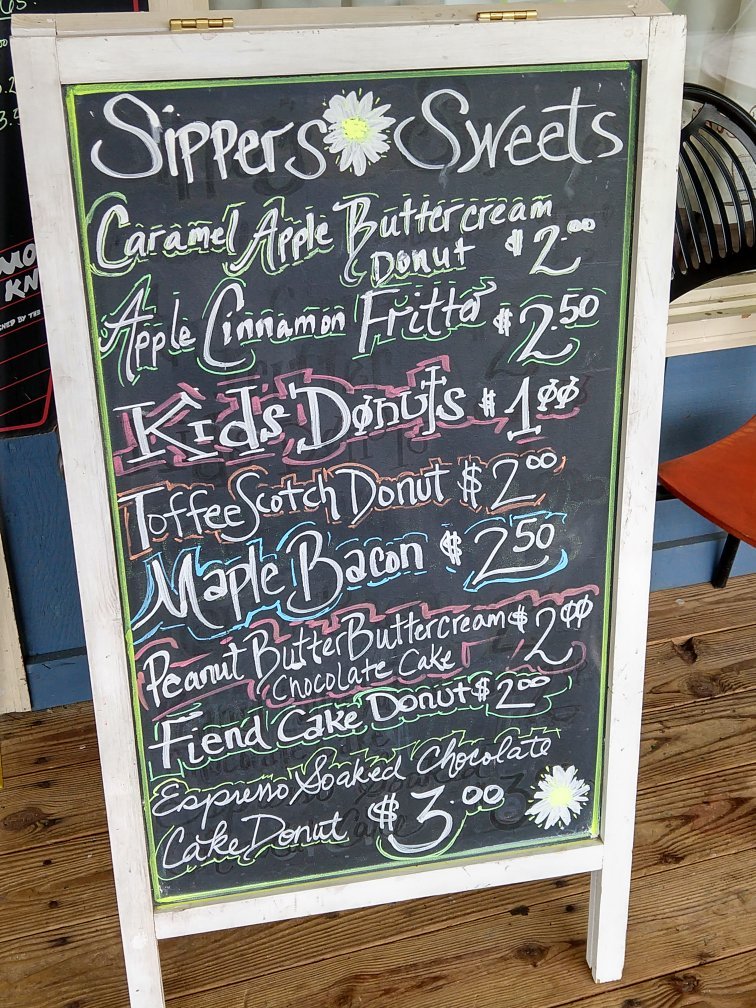 Sippers Sweets
Caramel Apple Buttercream
Donut $2.00
Apple Cinnamon Fritter $2.50
Kids Donuts $1.00
Toffee Scotch Donut $2.00
Maple Bacon $2.50
Peanut Butter Buttercream $2.00
Chocolate Cake
Fiend Cake Donut $2.00
Espresso Soaked Chocolate
Cake Donut $3.00